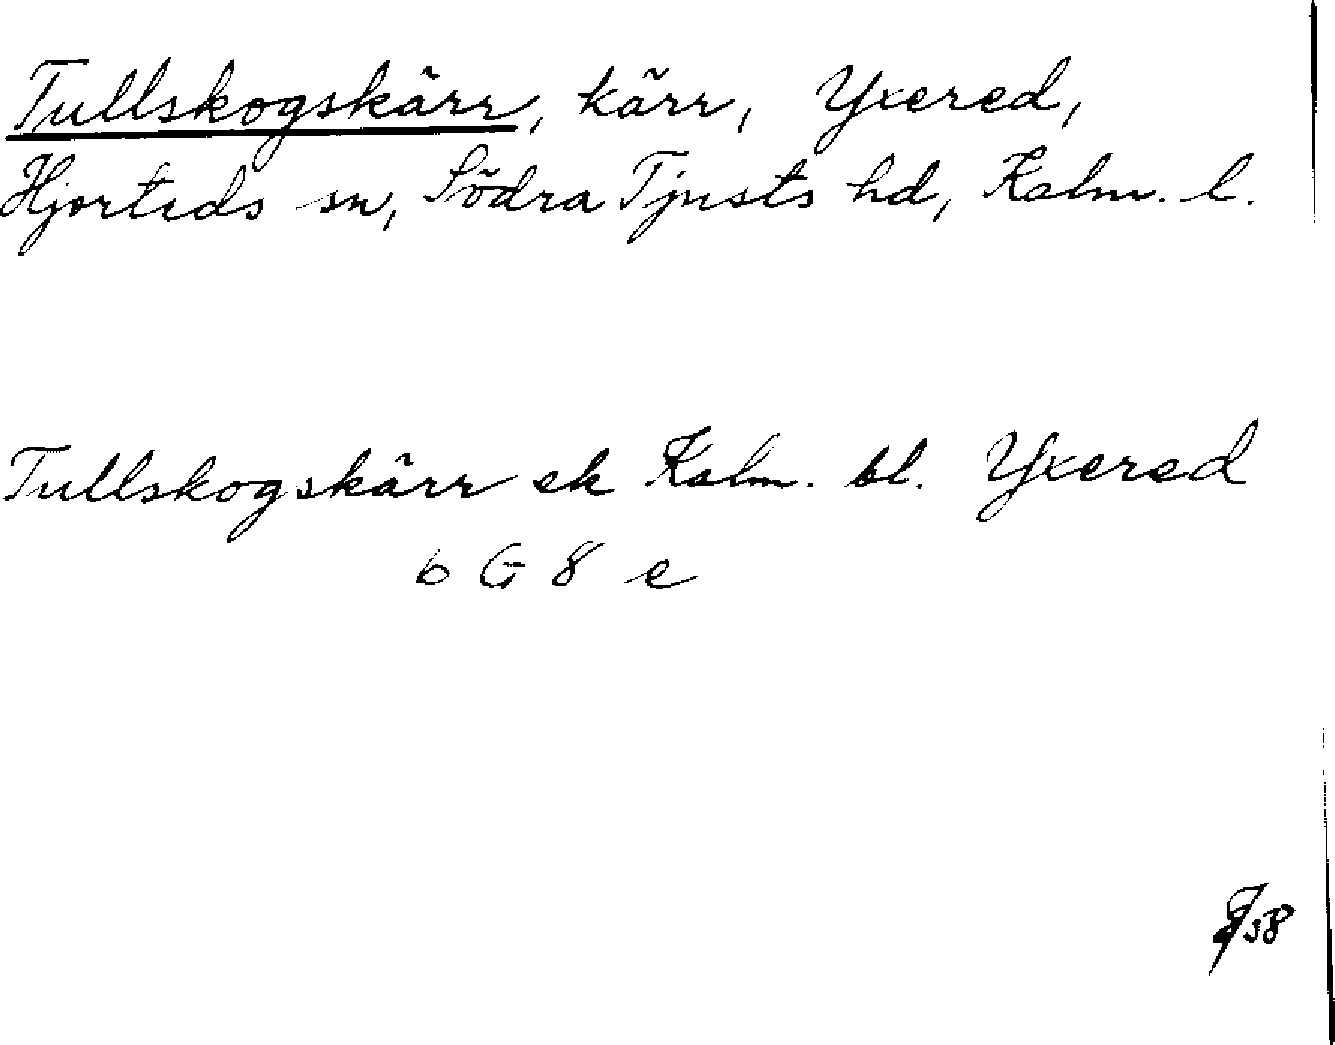 Tullskogskärr, kärr, Yxered,
Hjorteds sn, Södra Tjusts hd, Kalm. l.
Tullskogskärr ek Kalm. bl. Yxered
6 G 8 e